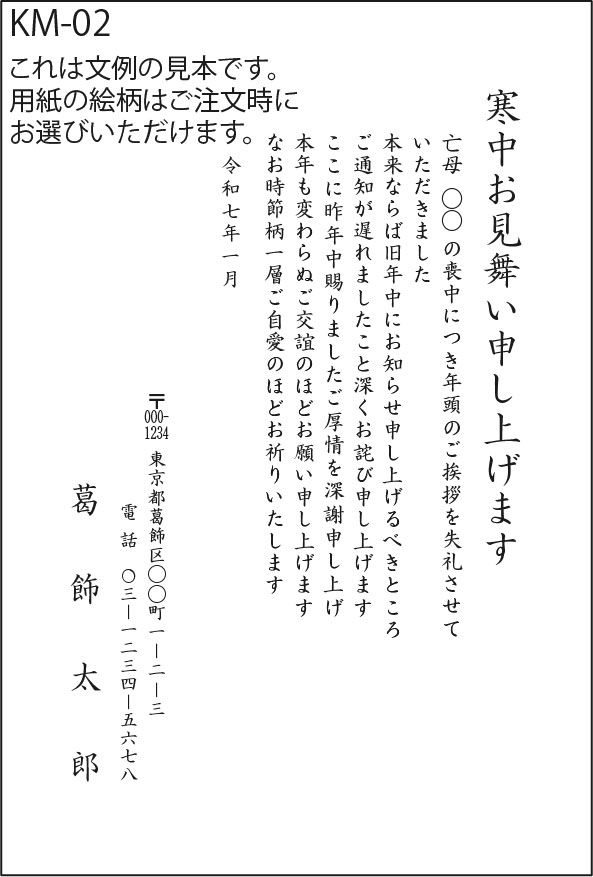 KM-02
これは文例の見本です。
用紙の絵柄はご注文時に
お選びいただけます。
寒中お見舞い申し上げます
亡母 〇〇の喪中につき年頭のご挨拶を失礼させて
いただきました
本来ならば旧年中にお知らせ申し上げるべきところ
ご通知が遅れましたこと深くお詫び申し上げます
ここに昨年中賜りましたご厚情を深謝申し上げ
本年も変わらぬご交誼のほどお願い申し上げます
なお時節柄一層ご自愛のほどお祈りいたします
令和七年一月
〒000-1234 東京都葛飾区〇〇町一—二—三
電話 〇三—一二三四—五六七八
葛飾太郎